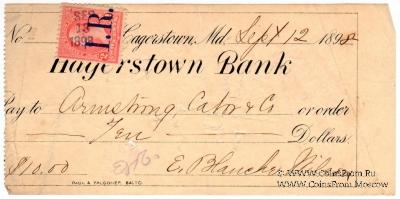 No.
SEP 13 1898
I.R.
Hagerstown, Md. Sept 12 1898
Hagerstown Bank
Pay to Armstrong, Cator & Co or order
Ten Dollars
$10.00
E. Blanche
PAUL & FALCONER, BALTO.
www.CoinsFrom.Ru
www.CoinsFrom.Com